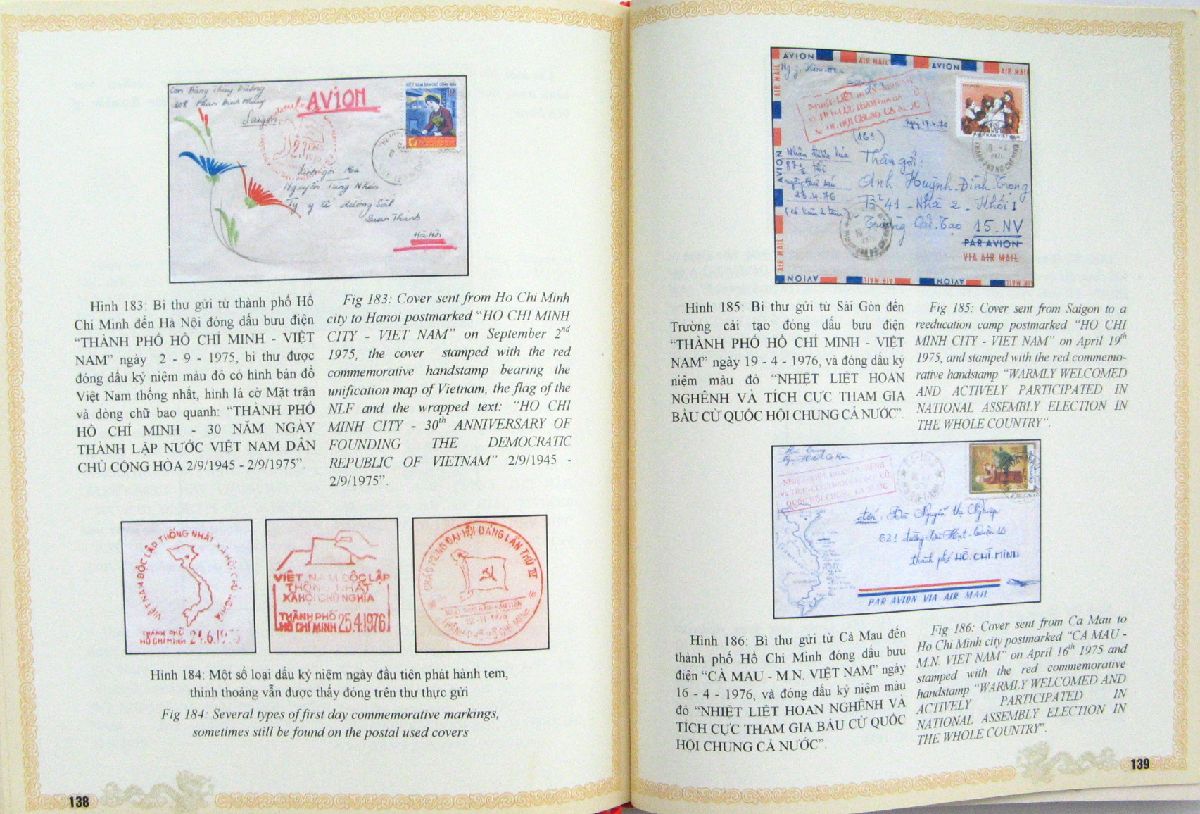 Con Đặng Thùy Dương
Saigon
AVION
Nguyễn Tùng Nhân
Ty y tế Đường Sắt
Hà Nội
Hình 183: Bì thư gửi từ thành phố Hồ
Chí Minh đến Hà Nội đóng dấu bưu điện
"THÀNH PHỐ HỒ CHÍ MINH - VIỆT
NAM" ngày 2 - 9 - 1975, bì thư được
đóng dấu kỷ niệm màu đỏ có hình bản đồ
Việt Nam thống nhất, hình lá cờ Mặt trận
và dòng chữ bao quanh: "THÀNH PHỐ
HỒ CHÍ MINH - 30 NĂM NGÀY
THÀNH LẬP NƯỚC VIỆT NAM DÂN
CHỦ CỘNG HÒA 2/9/1945 - 2/9/1975".
Fig 183: Cover sent from Ho Chi Minh
city to Hanoi postmarked "HO CHI MINH
CITY - VIET NAM" on September 2nd
1975, the cover stamped with the red
commemorative handstamp bearing the
unification map of Vietnam, the flag of the
NLF and the wrapped text: "HO CHI
MINH CITY - 30th ANNIVERSARY OF
FOUNDING THE DEMOCRATIC
REPUBLIC OF VIETNAM" 2/9/1945 -
2/9/1975".
VIỆT NAM ĐỘC LẬP THỐNG NHẤT XÃ HỘI CHỦ NGHĨA
THÀNH PHỐ
HỒ CHÍ MINH 24.6.1976
VIỆT NAM ĐỘC LẬP
THỐNG NHẤT
XÃ HỘI CHỦ NGHĨA
THÀNH PHỐ
HỒ CHÍ MINH 25.4.1976
CHÀO MỪNG ĐẠI HỘI ĐẢNG LẦN THỨ IV
THÀNH PHỐ HỒ CHÍ MINH
Hình 184: Một số loại dấu kỷ niệm ngày đầu tiên phát hành tem,
thỉnh thoảng vẫn được thấy đóng trên thư thực gửi
Fig 184: Several types of first day commemorative markings,
sometimes still be found on the postal used covers
138
AVION AIR MAIL AVION AIR MAIL
NHIỆT LIỆT HOAN NGHÊNH
VÀ TÍCH CỰC THAM GIA BẦU CỬ
QUỐC HỘI CHUNG CẢ NƯỚC
Thân gởi:
Anh Huỳnh Đình Trọng
B 41 - Nhà 2 - Khối 1
Trường Cải Tạo 15.NV
PAR AVION
VIA AIR MAIL
AVION AIR MAIL AVION
Hình 185: Bì thư gửi từ Sài Gòn đến
Trường cải tạo đóng dấu bưu điện
"THÀNH PHỐ HỒ CHÍ MINH - VIỆT
NAM" ngày 19 - 4 - 1976, và đóng dấu kỷ
niệm màu đỏ "NHIỆT LIỆT HOAN
NGHÊNH VÀ TÍCH CỰC THAM GIA
BẦU CỬ QUỐC HỘI CHUNG CẢ NƯỚC".
Fig 185: Cover sent from Saigon to a
reeducation camp postmarked "HO CHI
MINH CITY - VIET NAM" on April 19th
1975, and stamped with the red commemo-
rative handstamp "WARMLY WELCOMED
AND ACTIVELY PARTICIPATED IN
NATIONAL ASSEMBLY ELECTION IN
THE WHOLE COUNTRY".
NHIỆT LIỆT HOAN NGHÊNH
VÀ TÍCH CỰC THAM GIA BẦU CỬ
QUỐC HỘI CHUNG CẢ NƯỚC
thành phố HỒ CHÍ MINH
PAR AVION VIA AIR MAIL
Hình 186: Bì thư gửi từ Cà Mau đến
thành phố Hồ Chí Minh đóng dấu bưu
điện "CÀ MAU - M.N. VIỆT NAM" ngày
16 - 4 - 1976, và đóng dấu kỷ niệm màu
đỏ "NHIỆT LIỆT HOAN NGHÊNH VÀ
TÍCH CỰC THAM GIA BẦU CỬ QUỐC
HỘI CHUNG CẢ NƯỚC".
Fig 186: Cover sent from Ca Mau to
Ho Chi Minh city postmarked "CA MAU -
M.N. VIET NAM" on April 16th 1975 and
stamped with the red commemorative
handstamp "WARMLY WELCOMED AND
ACTIVELY PARTICIPATED IN
NATIONAL ASSEMBLY ELECTION IN
THE WHOLE COUNTRY".
139